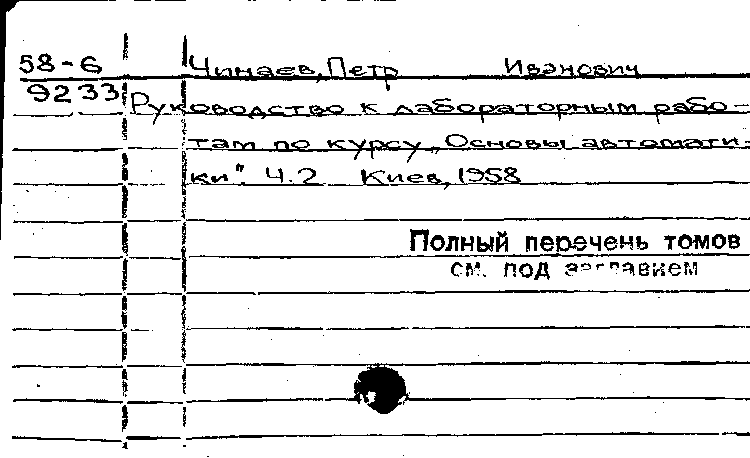 58-6 Чинаев, Петр Иванович
9233 Руководство к лабораторным рабо-
там по курсу „Основы автомати-
ки". Ч.2 Киев, 1958
Полный перечень томов
см. под заглавием